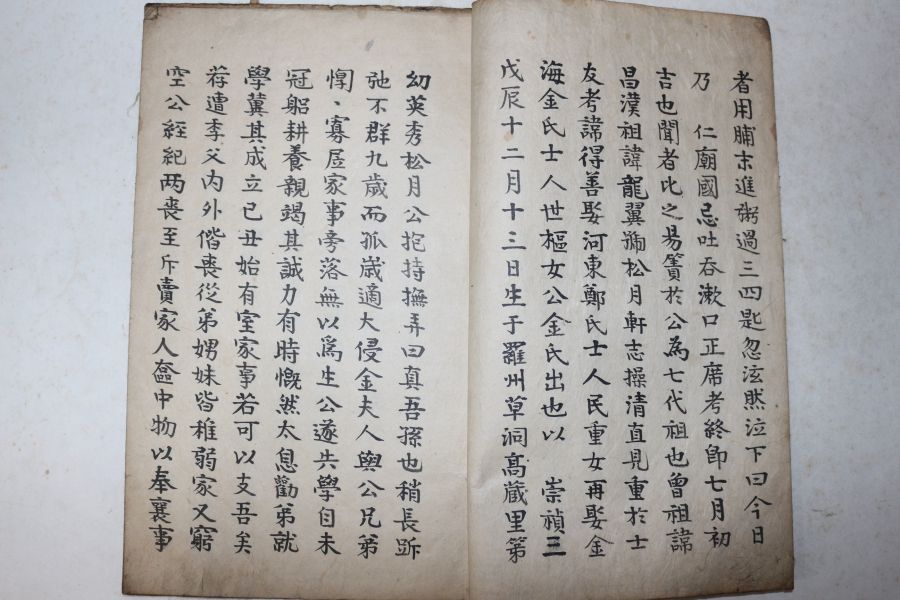 者用脯末進粥過三四匙忽泫然泣下曰今日
乃 仁廟國忌吐吞漱口正席考終卽七月初
吉也聞者比之易簀於公為七代祖也曾祖諱
昌漢祖諱龍翼號松月軒志操清直見重於士
友考諱得善娶河東鄭氏士人民重女再娶金
海金氏士人世樞女公金氏出也以 崇禎三
戊辰十二月十三日生于羅州草洞高藏里第
幼英秀松月公抱持撫弄曰真吾孫也稍長跅
弛不群九歲而孤歲適大侵金夫人與公兄弟
惸、寡居家事旁落無以爲生公遂失學自未
冠躬耕養親竭其誠力有時慨然太息勸弟就
學冀其成立已丑始有室家事若可以支吾矣
荐遭季父內外偕喪從弟娚妹皆稚弱家又窮
空公經紀两喪至斥賣家人奩中物以奉襄事